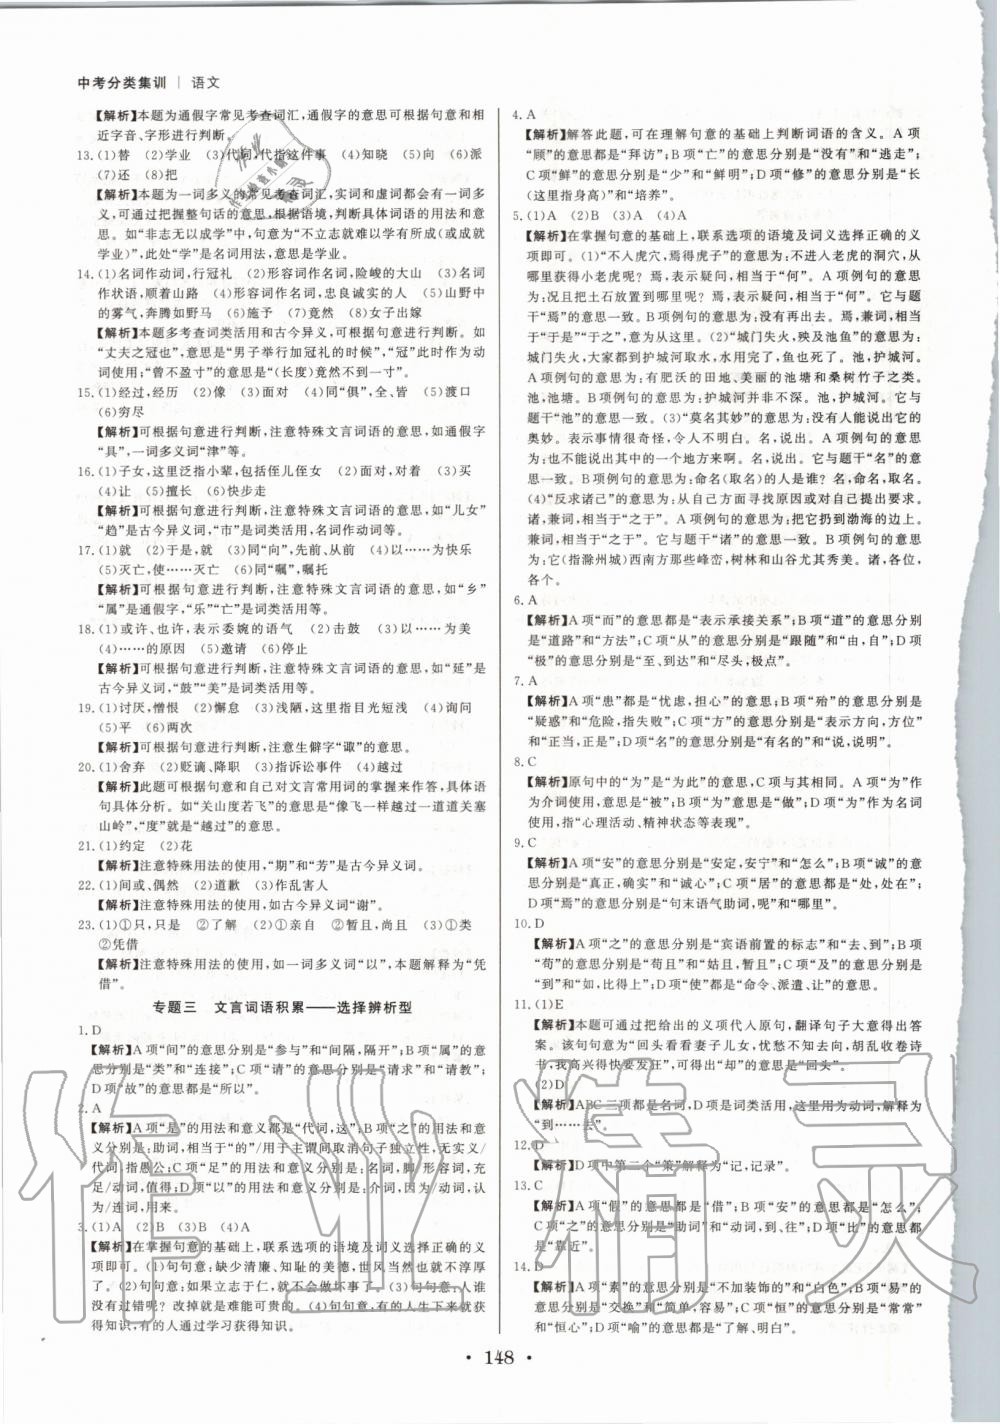 中考分类集训｜语文
【解析】本题为通假字常见考查词汇,通假字的意思可根据句意和相
近字音、字形进行判断。
13.(1)替　(2)学业　(3)代词,代指这件事　(4)知晓　(5)向　(6)派
(7)还　(8)把
【解析】本题为一词多义的常见考查词汇,实词和虚词都会有一词多
义,可通过把握整句话的意思,根据语境,判断具体词语的用法和意
思。如“非志无以成学”中,句意为“不立志就难以学有所成(或成就
学业)”,此处“学”是名词用法,意思是学业。
14.(1)名词作动词,行冠礼　(2)形容词作名词,险峻的大山　(3)名词
作状语,顺着山路　(4)形容词作名词,忠良诚实的人　(5)山野中
的雾气,奔腾如野马　(6)施予　(7)竟然　(8)女子出嫁
【解析】本题多考查词类活用和古今异义,可根据句意进行判断。如
“丈夫之冠也”,意思是“男子举行加冠礼的时候”,“冠”此时作动
词使用;“曾不盈寸”的意思是“(长度)竟然不到一寸”。
15.(1)经过,经历　(2)像　(3)面对　(4)同“俱”,全、皆　(5)渡口
(6)穷尽
【解析】可根据句意进行判断,注意特殊文言词语的意思,如通假字
“具”,一词多义词“津”等。
16.(1)子女,这里泛指小辈,包括侄儿侄女　(2)面对,对着　(3)买
(4)让　(5)擅长　(6)快步走
【解析】可根据句意进行判断,注意特殊文言词语的意思,如“儿女”
“趋”是古今异义词,“市”是词类活用,名词作动词等。
17.(1)就　(2)于是,就　(3)同“向”,先前,从前　(4)以……为快乐
(5)灭亡,使……灭亡　(6)同“嘱”,嘱托
【解析】可根据句意进行判断,注意特殊文言词语的意思,如“乡”
“属”是通假字,“乐”“亡”是词类活用等。
18.(1)或许、也许,表示委婉的语气　(2)击鼓　(3)以……为美
(4)……的原因　(5)邀请　(6)停止
【解析】可根据句意进行判断,注意特殊文言词语的意思,如“延”是
古今异义词,“鼓”“美”是词类活用等。
19.(1)讨厌,憎恨　(2)懈怠　(3)浅陋,这里指目光短浅　(4)询问
(5)平　(6)两次
【解析】可根据句意进行判断,注意生僻字“诹”的意思。
20.(1)舍弃　(2)贬谪、降职　(3)指诉讼事件　(4)越过
【解析】此题可根据句意和自己对文言常用词的积累来解答,具体语
句具体分析。如“关山度若飞”的意思是“像飞一样越过一道道关塞
山岭”,“度”就是“越过”的意思。
21.(1)约定　(2)花
【解析】注意特殊用法的使用,“期”和“芳”是古今异义词。
22.(1)间或、偶然　(2)道歉　(3)作乱害人
【解析】注意特殊用法的使用,如古今异义词“谢”。
23.(1)①只,只是　②了解　(2)①亲自　②暂且,尚且　(3)①类
②凭借
【解析】注意特殊用法的使用,如一词多义词“以”,本题应解释为“凭
借”。
专题三　文言词语积累——选择辨析型
1.D
【解析】A项“间”的意思分别是“参与”和“间隔,隔开”;B项“属”的意
思分别是“类”和“连接”;C项“请”的意思分别是“请求”和“请教”;
D项“故”的意思都是“所以”。
2.A
【解析】A项“是”的用法和意义都是“代词,这”;B项“之”的用法和
意义分别是:助词,相当于“的”/用于主谓间取消句子独立性,无实义/
代词,指愚公;C项“足”的用法和意义分别是:名词,脚/形容词,充
足/动词,值得;D项“以”的用法和意义分别是:介词,因为/动词,认
为/连词,用来。
3.(1)A　(2)B　(3)B　(4)A
【解析】在掌握句意的基础上,联系选项的语境及词义选择正确的义
项即可。(1)句意:缺少清廉、知耻的美德,世俗自然也就不淳厚
了。(2)句意:如果立志于仁,就不会做坏事了。(3)句意:人谁
没有过错呢?改掉就是最难能可贵的。(4)句意:有的人生下来就获
得知识,有的人通过学习获得知识。
4.A
【解析】解答此题,可在理解句意的基础上判断词语的含义。A项
“顾”的意思都是“拜访”;B项“亡”的意思分别是“没有”和“逃走”;
C项“鲜”的意思分别是“少”和“鲜明”;D项“修”的意思分别是“长
(这里指身高)”和“培养”。
5.(1)A　(2)B　(3)A　(4)A
【解析】在掌握句意的基础上,联系选项的语境及词义选择正确的义
项即可。(1)“不入虎穴,焉得虎子”的意思为:不进入老虎的洞穴,从
哪里获得小老虎呢?焉,表示疑问,相当于“何”。A项例句的意思
为:况且把土石放置到哪里呢?焉,表示疑问,相当于“何”。它与题
干“焉”的意思一致。B项例句的意思为:没有再出去。焉,相当于
兼词,“于是”“于之”,意为从这里。(2)“城门失火,殃及池鱼”的意思为:
城门失火,大家都到护城河取水,水用完了,鱼也死了。池,护城河。
A项例句的意思为:有肥沃的田地、美丽的池塘和桑树竹子之类。
池,池塘。B项例句的意思为:护城河并非不深。池,护城河。它与
题干“池”的意思一致。(3)“莫名其妙”的意思为:没有人能说出它的
奥妙。表示事情很奇怪,令人不明白。名,说出。A项例句的意思
为:不能说出其中的一个地方来。名,说出。它与题干“名”的意思
一致。B项例句的意思为:命名(取名)的人是谁?名,命名,取名。
(4)“反求诸己”的意思为:从自己方面寻找原因或对自己提出要求。
诸,兼词,相当于“之于”。A项例句的意思为:把它扔到渤海的边上。
兼词,相当于“之于”。它与题干“诸”的意思一致。B项例句的意思
为:(指滁州城)西南方那些峰峦,树林和山谷尤其秀美。诸,各位,
各个。
6.A
【解析】A项“而”的意思都是“表示承接关系”;B项“道”的意思分别
是“道路”和“方法”;C项“从”的意思分别是“跟随”和“由,自”;D项
“极”的意思分别是“至、到达”和“尽头,极点”。
7.A
【解析】A项“患”都是“忧虑,担心”的意思;B项“殆”的意思分别是
“疑惑”和“危险,指失败”;C项“方”的意思分别是“表示方向,方位”
和“正当,正是”;D项“名”的意思分别是“有名的”和“说出,说明”。
8.C
【解析】原句中的“为”是“为此”的意思,C项与其相同。A项“为”作
为介词使用,意思是“被”;B项“为”意思是“做”;D项“为”作为名词
使用,指“心理活动、精神状态等表现”。
9.C
【解析】A项“安”的意思分别是“安定,安宁”和“怎么”;B项“诚”的意
思分别是“真正,确实”和“诚心”;C项“居”的意思都是“处在”;
D项“焉”的意思分别是“句末语气助词,呢”和“哪里”。
10.D
【解析】A项“之”的意思分别是“宾语前置的标志”和“去、到”;B项
“苟”的意思分别是“苟且”和“姑且,暂且”;C项“至”的意思分别是
“到”和“周到”;D项“使”的意思都是“命令,派遣、让”。
11.(1)E
【解析】本题可通过把给出的义项代人原句,翻译句子大意得出答
案。该句句意为“回头看看妻子儿女,忧愁不知去向,胡乱收卷诗
书,我高兴得快要发狂”,可判断“却”的意思是“回头”。
(2)D
【解析】ABC三项都是名词,D项是词类活用,这里用为动词,解释为
“到……去”。
12.D
【解析】D项中第二个“策”解释为“记,记录”。
13.C
【解析】A项“假”的意思都是“借”;B项“安”的意思都是“怎么”;
C项“之”的意思分别是“助词”和“动词,到、往”;D项“比”的意思都
是“靠近”。
14.D
【解析】A项“素”的意思分别是“不加装饰的”和“白色”;B项“易”的
意思分别是“交换”和“简单,容易”;C项“恒”的意思分别是“常常”
和“恒心”;D项“喻”的意思都是“了解、明白”。
• 148 •
作业精灵